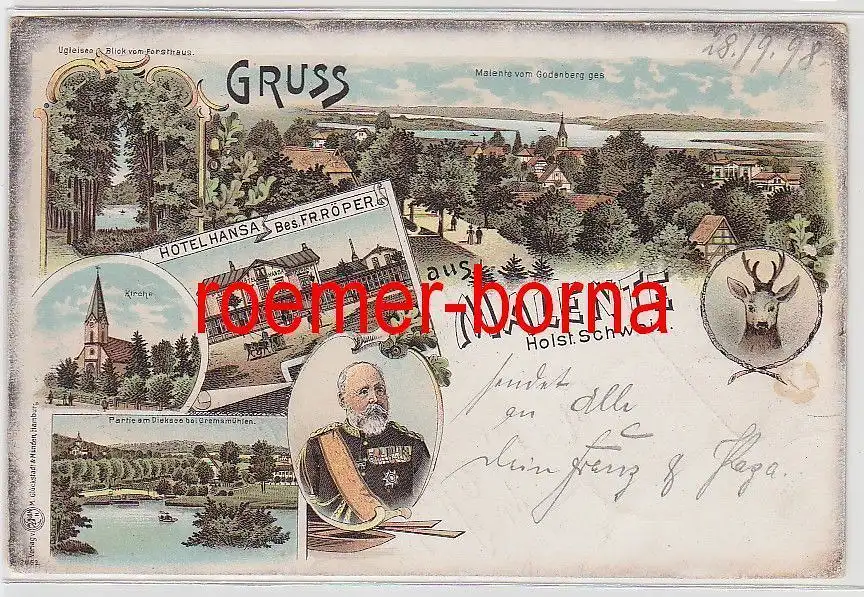 Ugleisee Blick vom Forsthaus.
28./9.98
GRUSS
Malente vom Godenberg ges
HOTEL HANSA Bes. FR. RÖPER.
aus
MALENTE
Holst. Schweiz.
Kirche.
roemer-borna
sendet
an Alle
Dein Franz &
Partie am Dieksee bei Gremsmühlen.
Verlag v. M. Glückstadt & Münden, Hamburg.